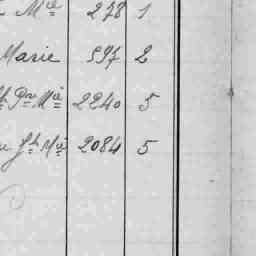 Mce 278 1
Marie 597 2
Pre Mie 2240 5
Jh Mie 2084 5